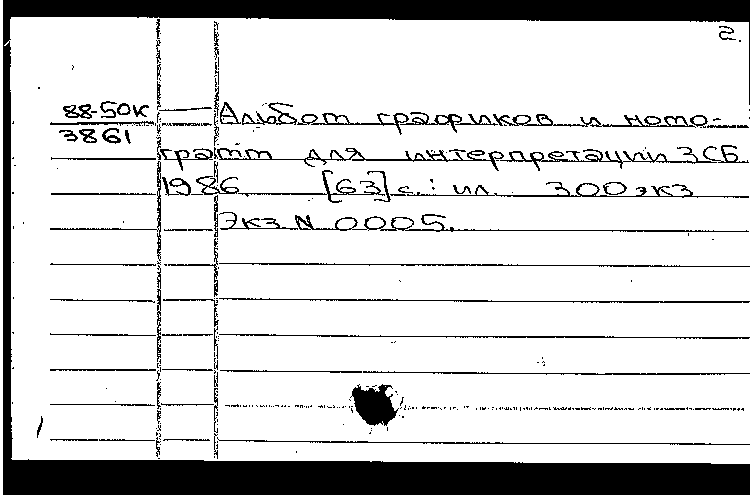 2.
88-50к — Альбом графиков и номо-
3861
грамм для интерпретации ЗСБ
1986 [63] с.: ил. 300 экз
Экз N 0005.